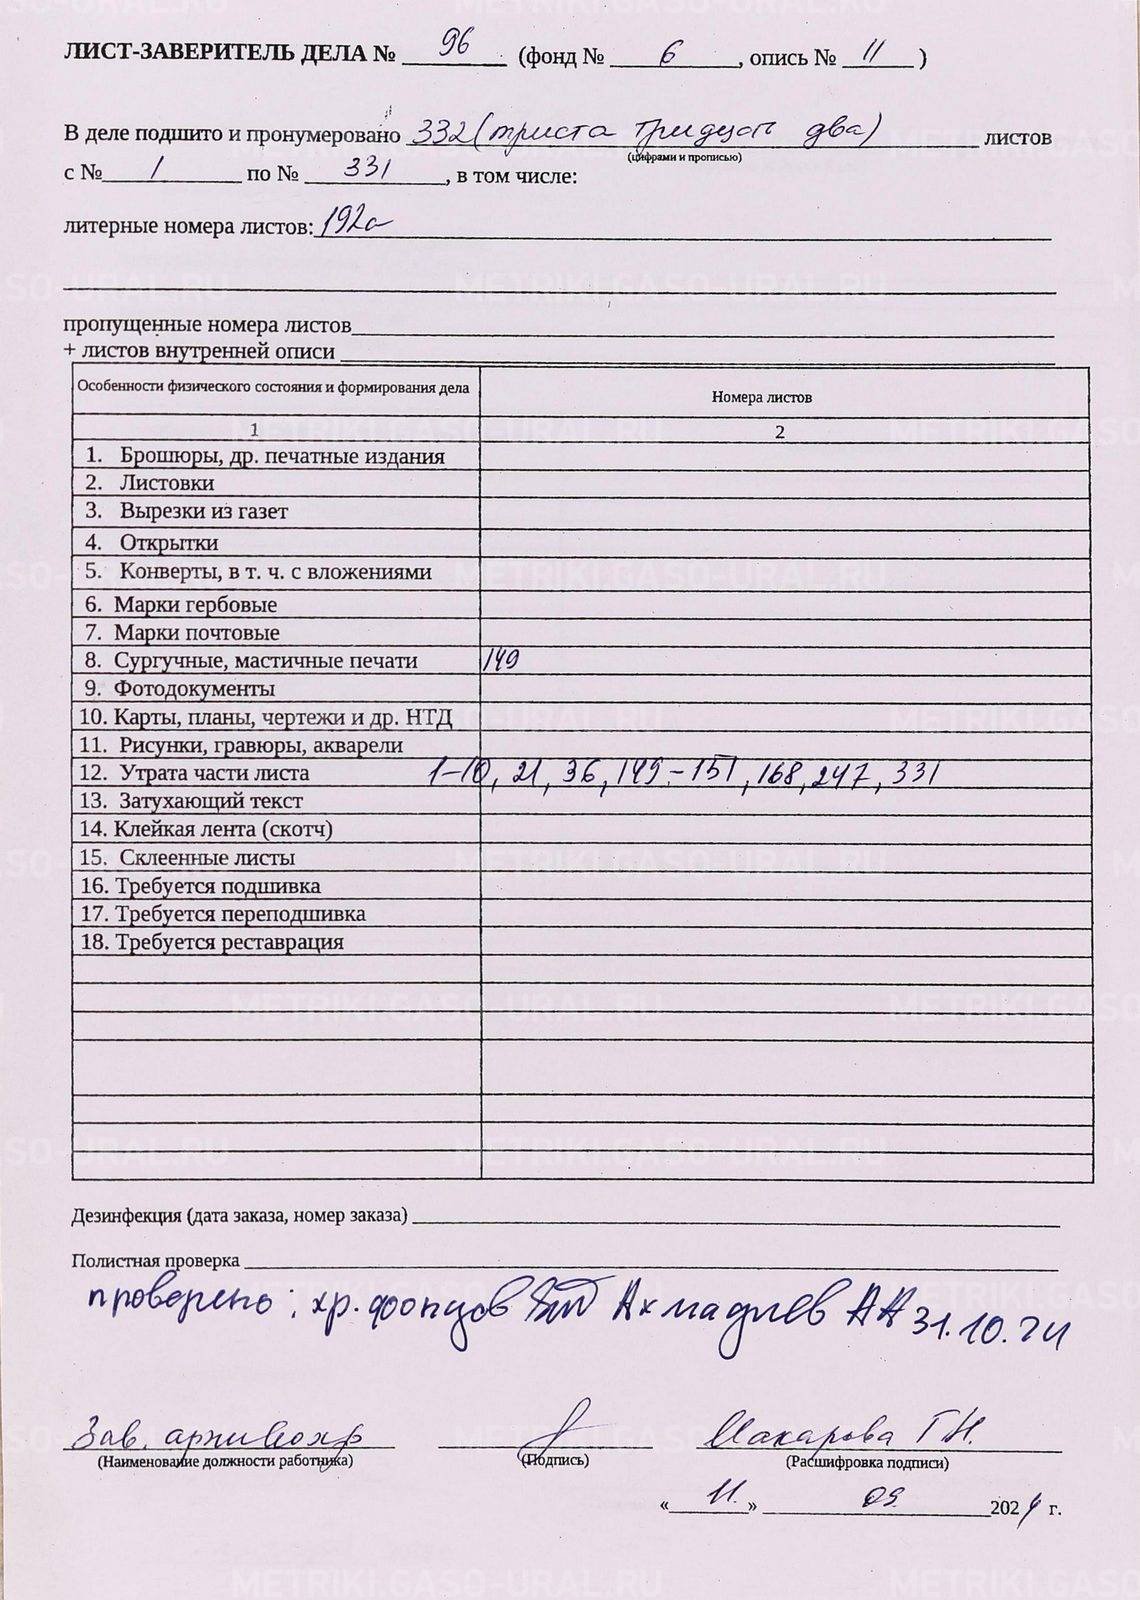 ЛИСТ-ЗАВЕРИТЕЛЬ ДЕЛА № 96 (фонд № 6, опись № 11)
В деле подшито и пронумеровано 332 (триста тридцать два) листов
(цифрами и прописью)
с № 1 по № 331, в том числе:
литерные номера листов: 192а
пропущенные номера листов
+ листов внутренней описи
Особенности физического состояния и формирования дела Номера листов
1 2
1. Брошюры, др. печатные издания
2. Листовки
3. Вырезки из газет
4. Открытки
5. Конверты, в т. ч. с вложениями
6. Марки гербовые
7. Марки почтовые
8. Сургучные, мастичные печати 149
9. Фотодокументы
10. Карты, планы, чертежи и др. НТД
11. Рисунки, гравюры, акварели
12. Утрата части листа 1-10, 21, 36, 149-151, 168, 247, 331
13. Затухающий текст
14. Клейкая лента (скотч)
15. Склеенные листы
16. Требуется подшивка
17. Требуется переподшивка
18. Требуется реставрация
Дезинфекция (дата заказа, номер заказа)
Полистная проверка
проверено: хр. фондов Ахмадиев АА 31.10.24
Зав. архивохр Макарова Г.Н.
(Наименование должности работника) (Подпись) (Расшифровка подписи)
«11» 09 2024 г.
METRIKI.GASO-URAL.RU